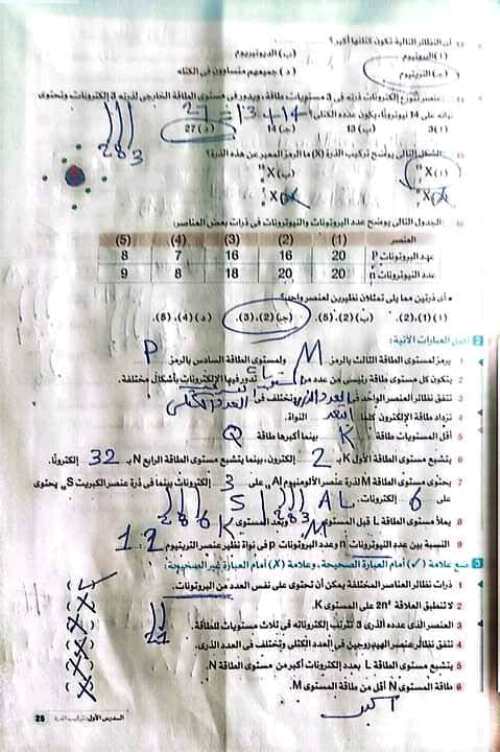 أى النظائر التالية تكون كتلتها أكبر؟
(أ) البروتيوم (ب) الديوتيريوم
(ج) التريتيوم (د) جميعهم متساوون فى الكتلة
عنصر تتوزع إلكترونات ذرته فى 3 مستويات طاقة، ويدور فى مستوى الطاقة الخارجى لذرته 3 إلكترونات وتحتوى
نواته على 14 نيوترونًا، يكون عدده الكتلى؟ 27 = 13 + 14
(أ) 3 (ب) 13 (ج) 14 (د) 27
2 8 3
الشكل التالى يوضح تركيب الذرة (X) ما الرمز المعبر عن هذه الذرة؟
(أ) X (ب) X
X X
الجدول التالى يوضح عدد البروتونات والنيوترونات فى ذرات بعض العناصر:
العنصر (1) (2) (3) (4) (5)
عدد البروتونات P 20 16 16 7 8
عدد النيوترونات n 20 20 18 8 9
• أى ذرتين مما يلى تمثلان نظيرين لعنصر واحد؟
(أ) (1)، (2). (ب) (2)، (5). (ج) (2)، (3). (د) (4)، (5).
2 أكمل العبارات الآتية:
1 يرمز لمستوى الطاقة الثالث بالرمز M ولمستوى الطاقة السادس بالرمز P
2 يتكون كل مستوى طاقة رئيسى من عدد من تدور فيها الإلكترونات بأشكال مختلفة.
3 تتفق نظائر العنصر الواحد فى العدد الذرى وتختلف فى العدد الكتلى
4 تزداد طاقة الإلكترون كلما ابتعد النواة.
5 أقل المستويات طاقة K بينما أكبرها طاقة Q
6 يتشبع مستوى الطاقة الأول K بـ 2 إلكترون، بينما يتشبع مستوى الطاقة الرابع N بـ 32 إلكترونًا.
7 يحتوى مستوى الطاقة M لذرة عنصر الألومنيوم Al على 3 إلكترونات بينما فى ذرة عنصر الكبريت S يحتوى
على 6 إلكترونات. S AL
2 8 6 2 8 3
8 يملأ مستوى الطاقة L قبل المستوى M وبعد المستوى K
9 النسبة بين عدد النيوترونات n وعدد البروتونات p فى نواة نظير عنصر التريتيوم 1:2
3 ضع علامة (✓) أمام العبارة الصحيحة، وعلامة (X) أمام العبارة غير الصحيحة:
1 ذرات نظائر العناصر المختلفة يمكن أن تحتوى على نفس العدد من البروتونات.
2 لا تنطبق العلاقة 2n² على المستوى K.
3 العنصر الذى عدده الذرى 3 تترتب إلكتروناته فى ثلاث مستويات للطاقة.
21
4 تتفق نظائر عنصر الهيدروجين فى العدد الكتلى وتختلف فى العدد الذرى.
5 يتشبع مستوى الطاقة L بعدد إلكترونات أكبر من مستوى الطاقة N.
6 طاقة المستوى N أقل من طاقة المستوى M.
اكبر
الدرس الأول: تركيب الذرة